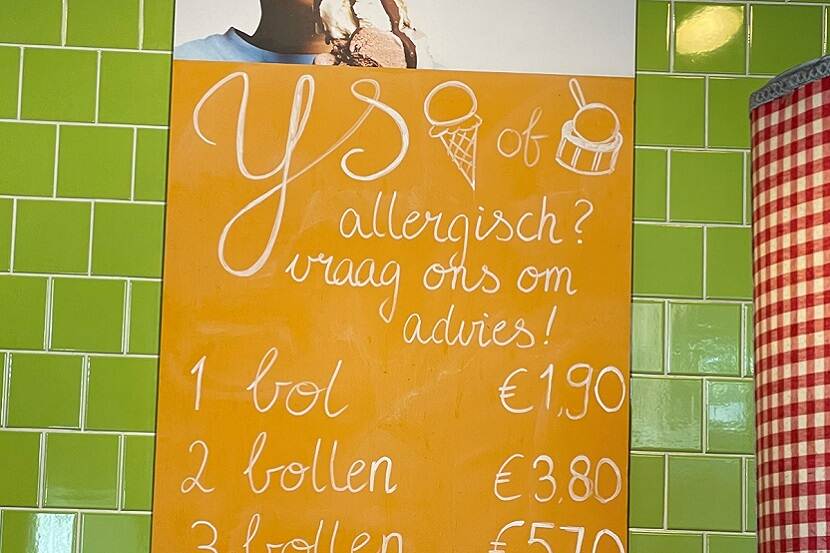 ys of
allergisch?
vraag ons om
advies!
1 bol €1,90
2 bollen €3,80
3 bollen €5,70